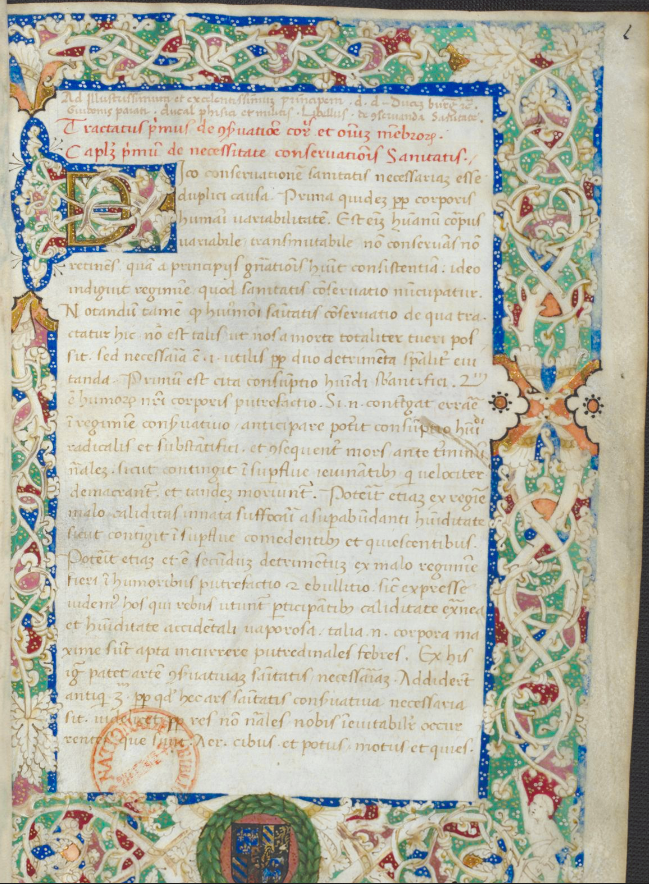 Ad Illustrissimum et excelentissimum principem . d . d . Ducem
Guidonis parati . ducal phisici et militis . Libellus . de conseruanda Sanitate.
Tractatus pͥmus de ꝯẜuatiõe cor̃ et oĩuʒ mẽbroꝝ.
Caplʒ pͥmũ de necessitate conservatiõis Sanitatis.
Dico conseruationẽ sanitatis necessariaʒ esse
duplici causa. Prima quideʒ ꝓp corporis
humani uariabilitatẽ. Est eĩʒ hũanũ corpus
uariabile transmutabile nõ conseruãs nõ
retinẽs quã a principijs gñatiõis hũit consistentiã. ideo
indiguit regimĩe quod sanitatis cõseruatio nũcupatur.
Notandũ tamẽ ꝙ hmõi sãitatis cõseruatio de qua tra
ctatur hic nõ est talis ut nos a morte totaliter tueri pos
sit. sed necessaria ẽ .i. utilis ꝓp duo detrimẽta sp̃alit̃ eui
tanda. Primũ est cita consũptio hũidi sb̃antifici. 2ᵐ
ẽ humorꝝ nr̃i corporis putrefactio. Si .n. cõtĩgat errare
ĩ regimĩe conẜuatiuo anticipare poterit consũptio hũidi
radicalis et substãtifici. et ꝯsequẽter mors ante t̃minũ
nãlez. sicut contingit ĩ suꝑflue ieiunãtibꝰ qͥ uelociter
demacrant̃, et tandeʒ moriunt̃. Poterit etiaʒ ex regiĩe
malo caliditas innata suffocari a suꝑabũdanti hũiditate
sicut contingit ĩ suꝑflue comedentibꝰ et quiescentibus.
Poterit etiaʒ et ẽ secunduʒ detrimentuʒ ex malo regimine
fieri ĩ humoribus putrefactio ⁊ ebullitio. sic̃ expresse
uidemꝰ hos qui rebus utunt̃ ꝑticipãtibꝰ caliditate exñea
et hũiditate accidẽtali uaporosa. talia .n. corpora ma
xime sũt apta incurrere putredinales febres. Ex his
ig̃ patet artẽ ꝯẜuatiuaʒ sãitatis necessariaʒ. Addidert̃
antiqͥ 3ᵐ ꝓp qd̃ hec ars sãitatis conẜuatiua necessaria
sit. res nõ nãles nobis ĩeuitabilr̃ occur
rentes que sũt. Aer. cibus et potus. motus et quies.